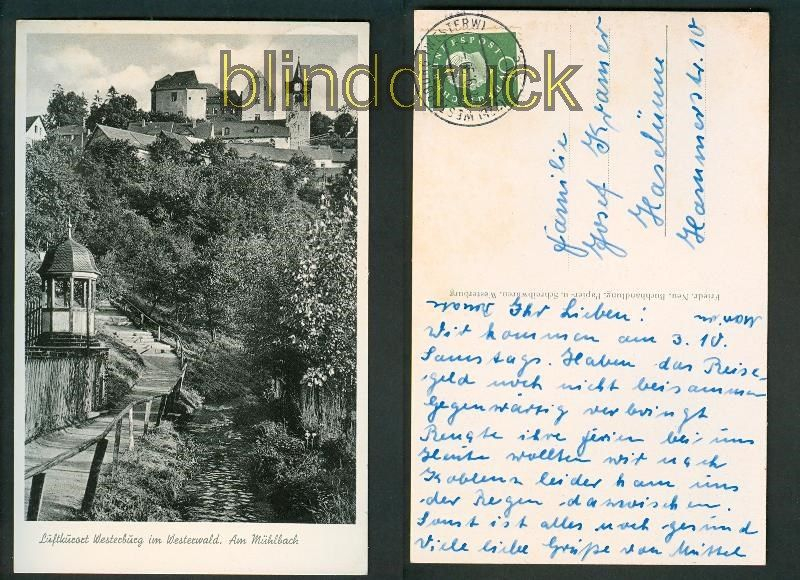 blinddruck
Luftkurort Westerburg im Westerwald. Am Mühlbach
Familie
Josef Kramer
Haselünne
Hammerstr. 10
Friedr. Neu, Buchhandlung, Papier- u. Schreibwaren, Westerburg
Ihr Lieben!
Wir kommen am 3.10.
Samstags. Haben das Reise-
geld noch nicht beisammen
Gegenwärtig verbringt
Renate ihre Ferien bei uns
Heute wollten wir nach
Koblenz leider kam uns
der Regen dazwischen.
Sonst ist alles noch gesund
Viele liebe Grüße von Müttel